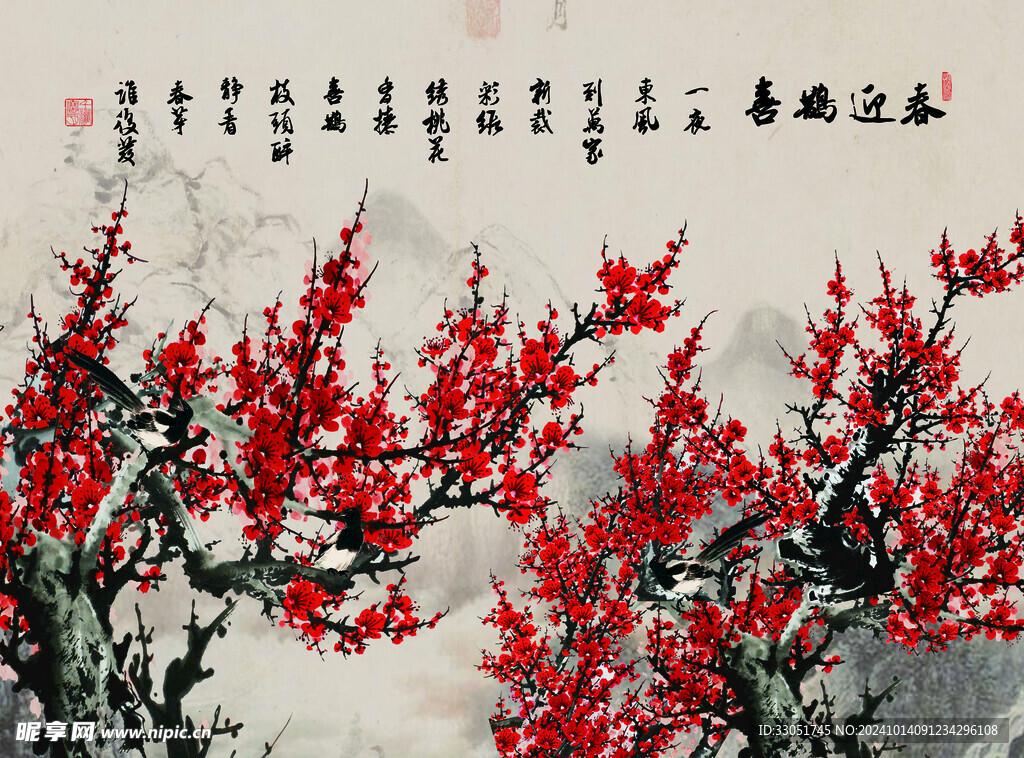 喜鵲迎春
一夜
東風
到萬家
新裁
彩紙
綉桃花
喜鵲
枝頭醉
静看
春芽
誰復發
昵享网 www.nipic.cn
ID:33051745 NO:20241014091234296108